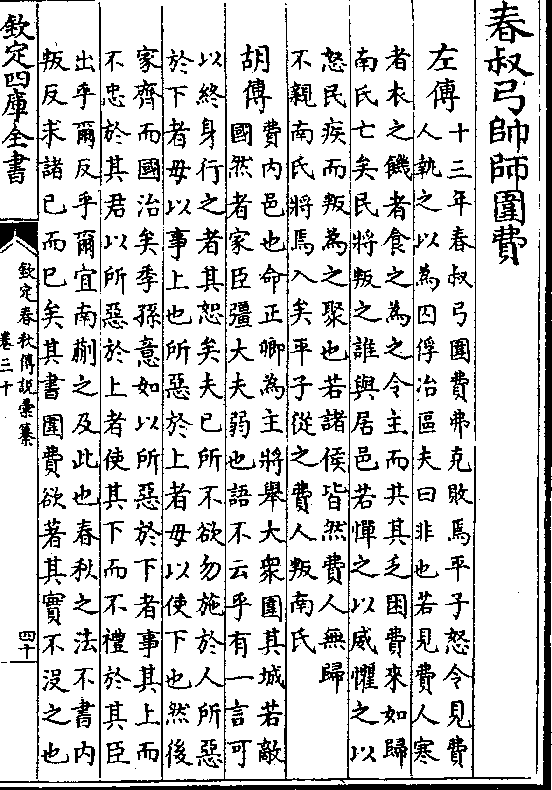 春叔弓帥師圍費
左傳十三年春叔弓圍費弗克敗焉平子怒令見費
人執之以為囚俘冶區夫曰非也若見費人寒
者衣之饑者食之為之令主而共其乏困費來如歸
南氏亡矣民將叛之誰與居邑若憚之以威懼之以
怒民疾而叛為之聚也若諸侯皆然費人無歸
不親南氏將焉入矣平子從之費人叛南氏
胡傳費內邑也命正卿為主將舉大衆圍其城若敵
國然者家臣彊大夫弱也語不云乎有一言可
以終身行之者其恕矣夫已所不欲勿施於人所惡
於下者毋以事上也所惡於上者毋以使下也然後
家齊而國治矣季孫意如以所惡於下者事其上而
不忠於其君以所惡於上者使其下而不禮於其臣
出乎爾反乎爾宜南蒯之及此也春秋之法不書內
叛反求諸已而已矣其書圍費欲著其實不沒之也
欽定四庫全書
欽定春秋傳說彙纂
卷三十
四十